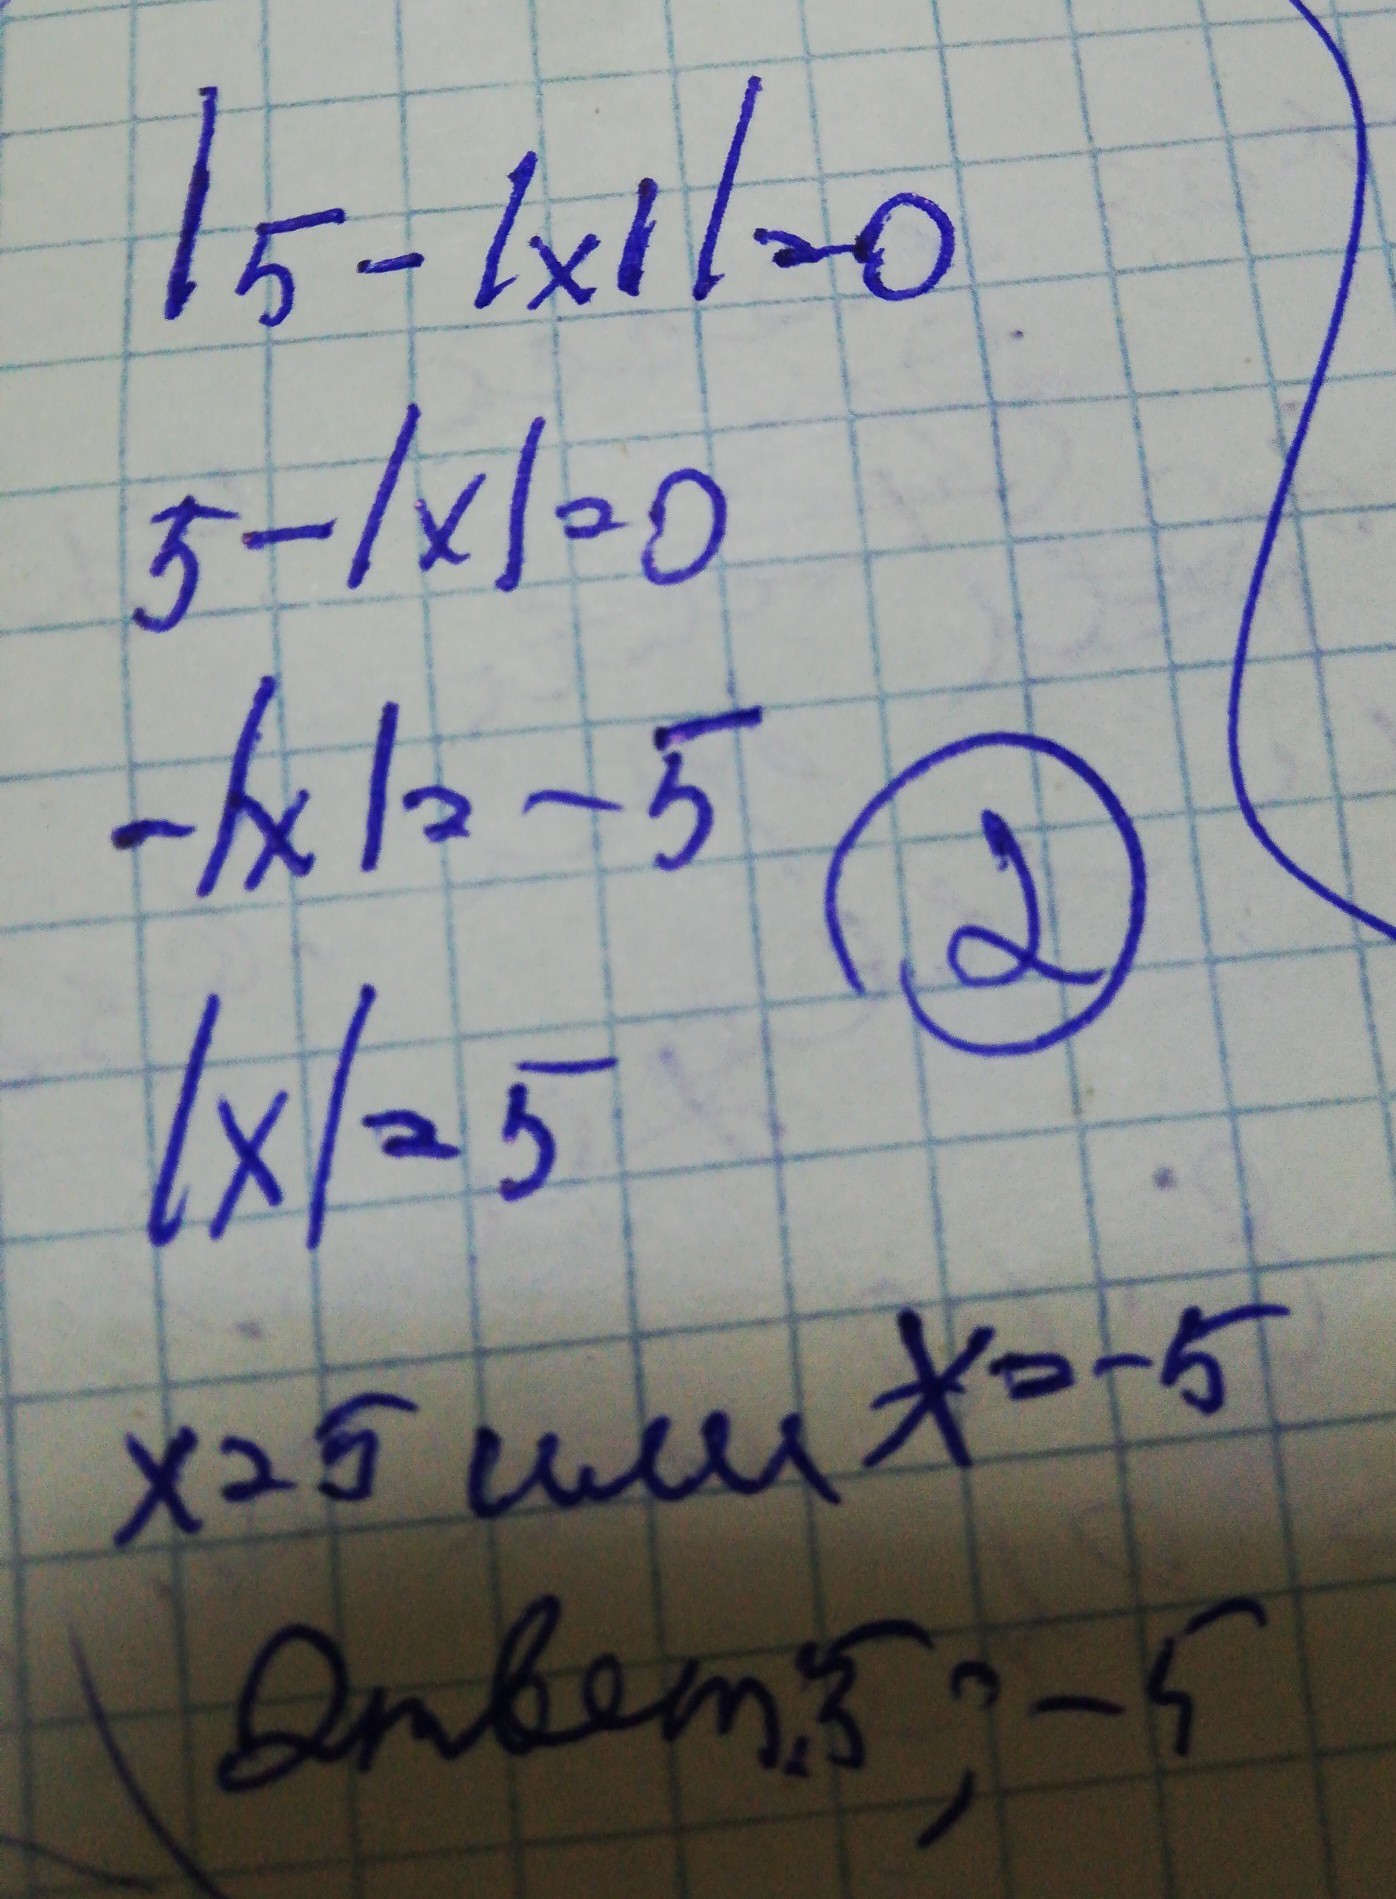 |5-|x||=0
5-|x|=0
-|x|=-5
2
|x|=5
x=5 или x=-5
Ответ: 5; -5